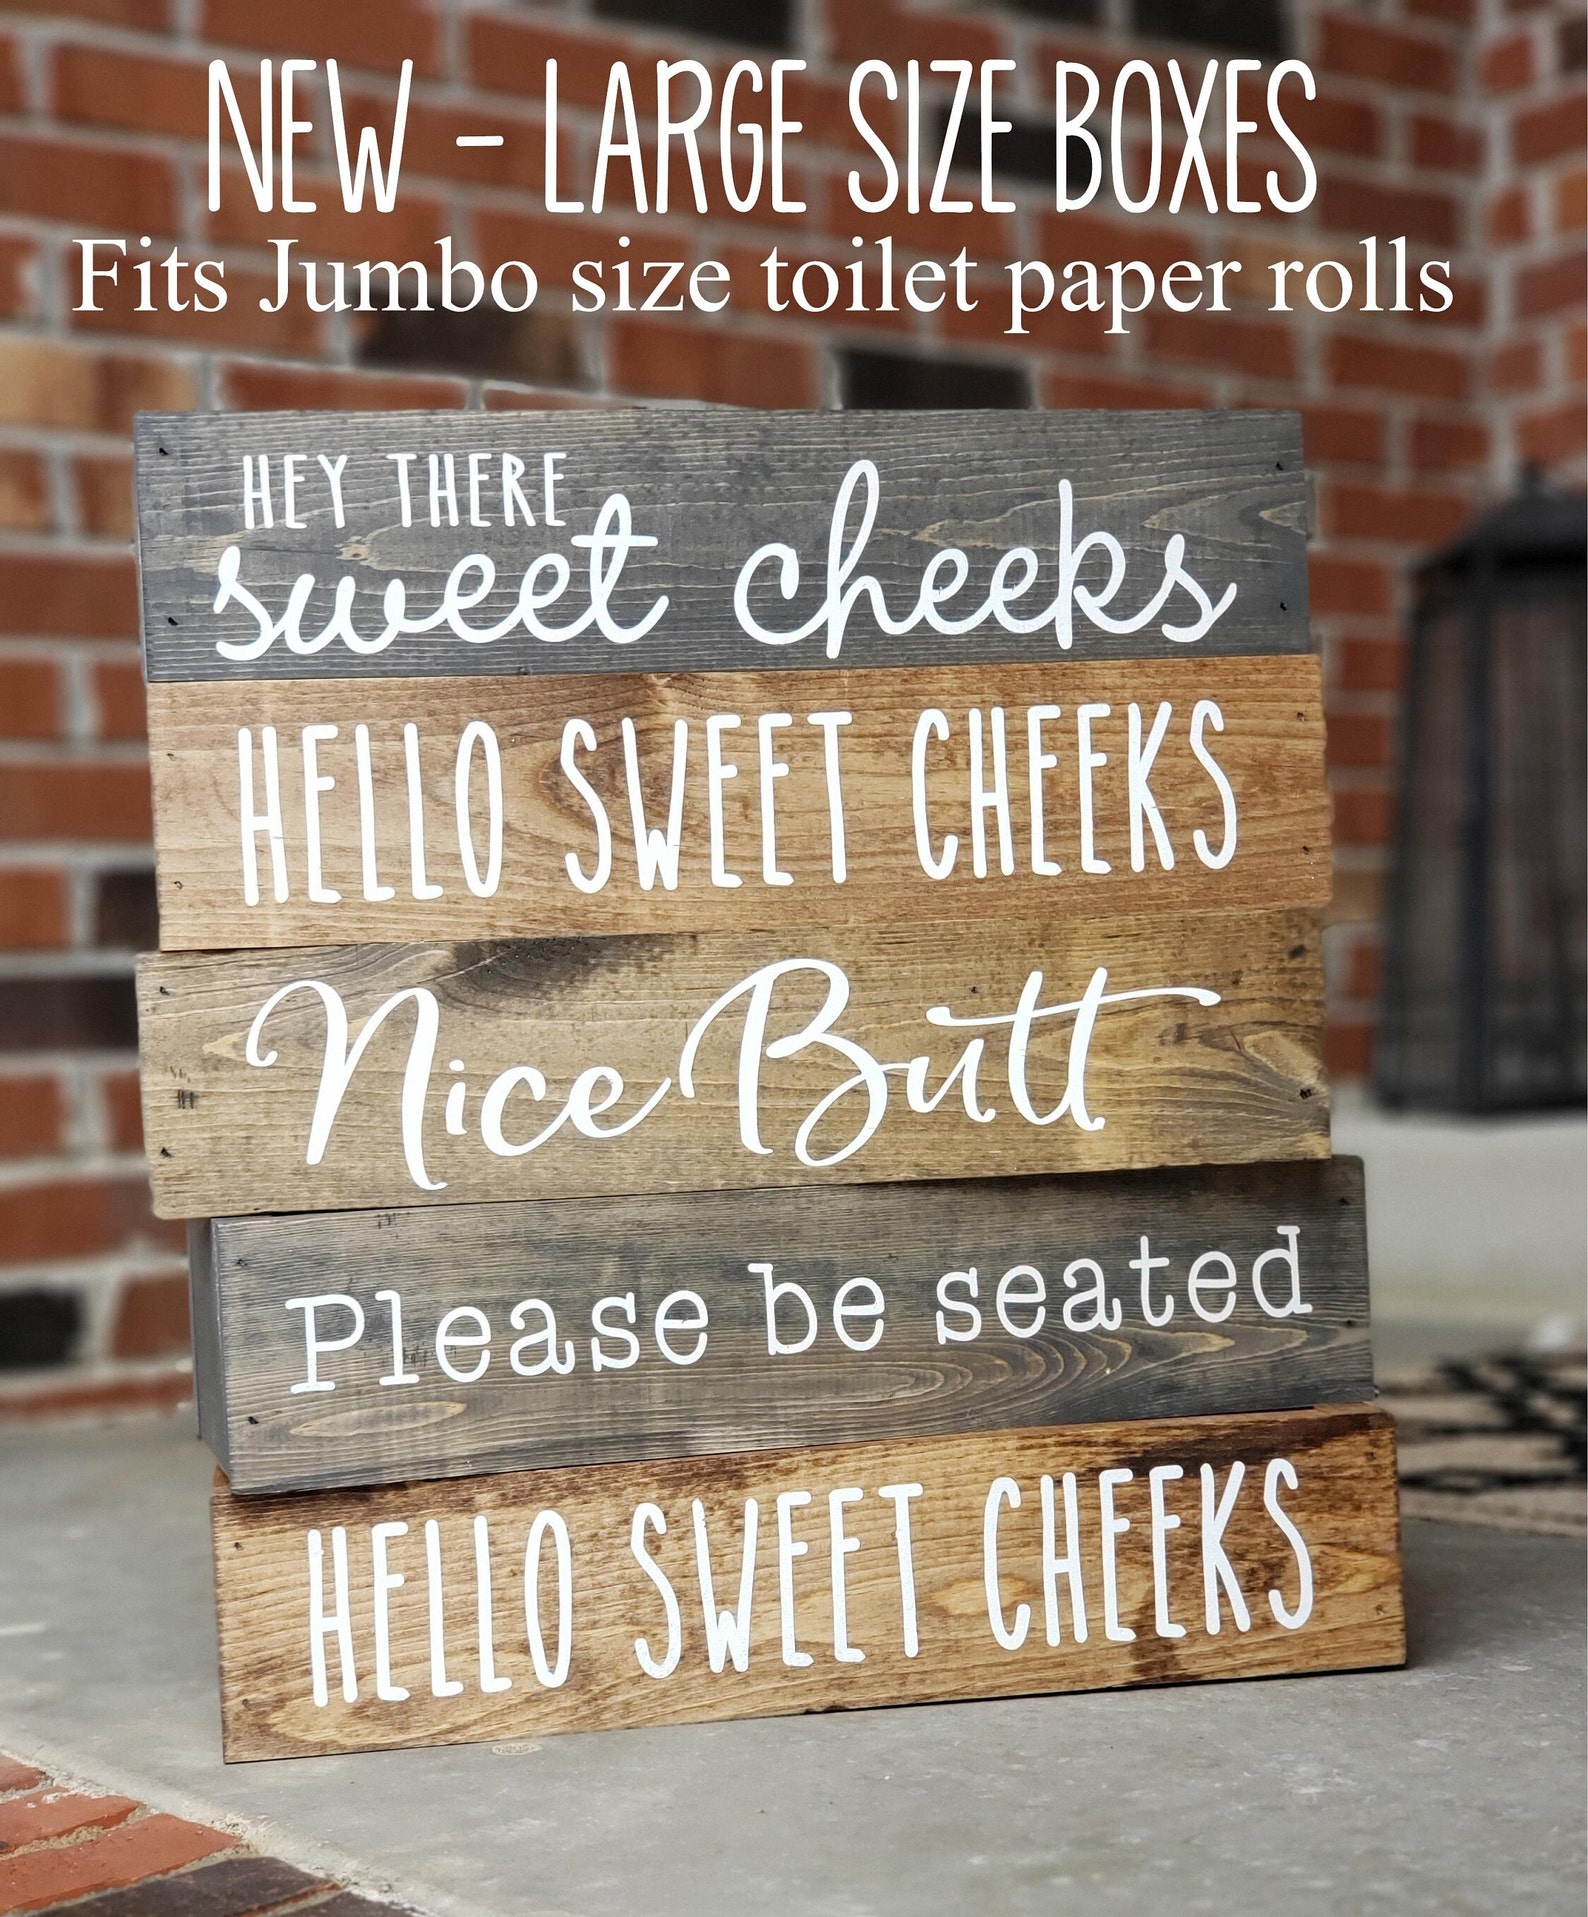 NEW - LARGE SIZE BOXES
Fits Jumbo size toilet paper rolls
HEY THERE
sweet cheeks
HELLO SWEET CHEEKS
Nice Butt
Please be seated
HELLO SWEET CHEEKS